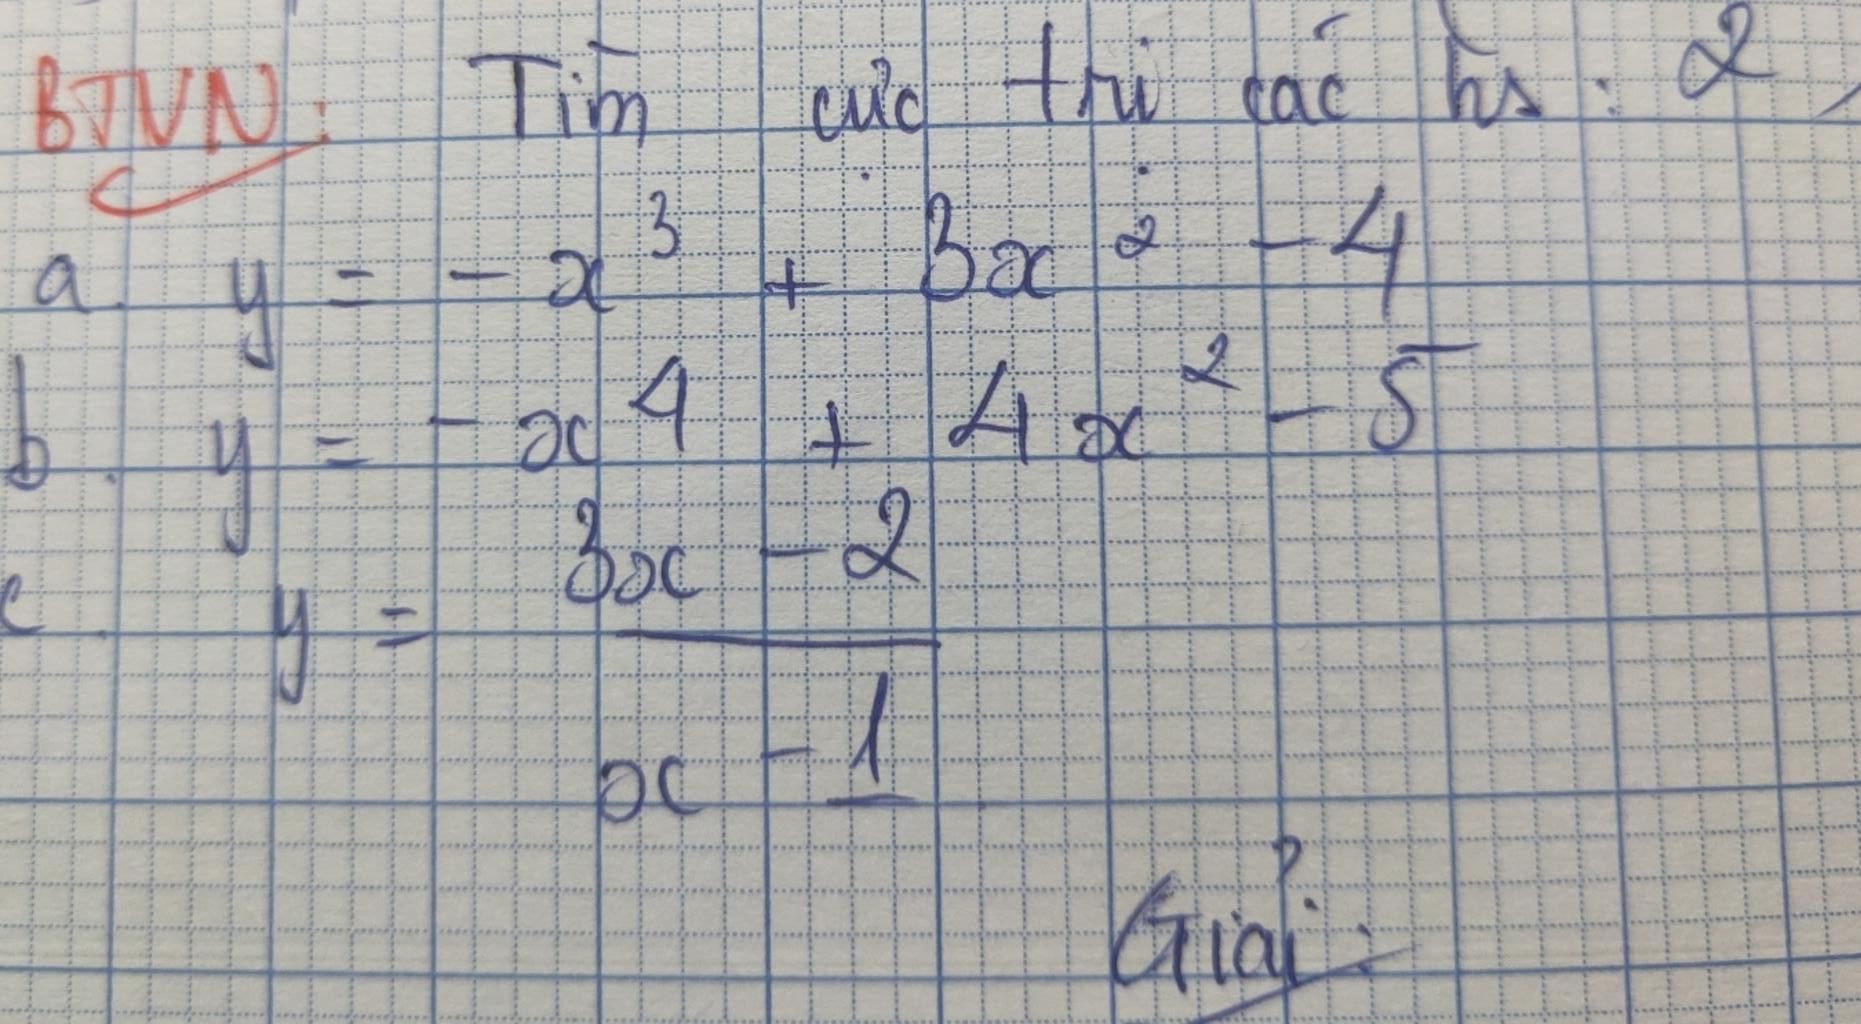 BTVN: Tìm cực trị các hs : 2
a. y = - x³ + 3x² - 4
b. y = - x⁴ + 4x² - 5
c. y = \frac{3x - 2}{x - 1}
Giải: